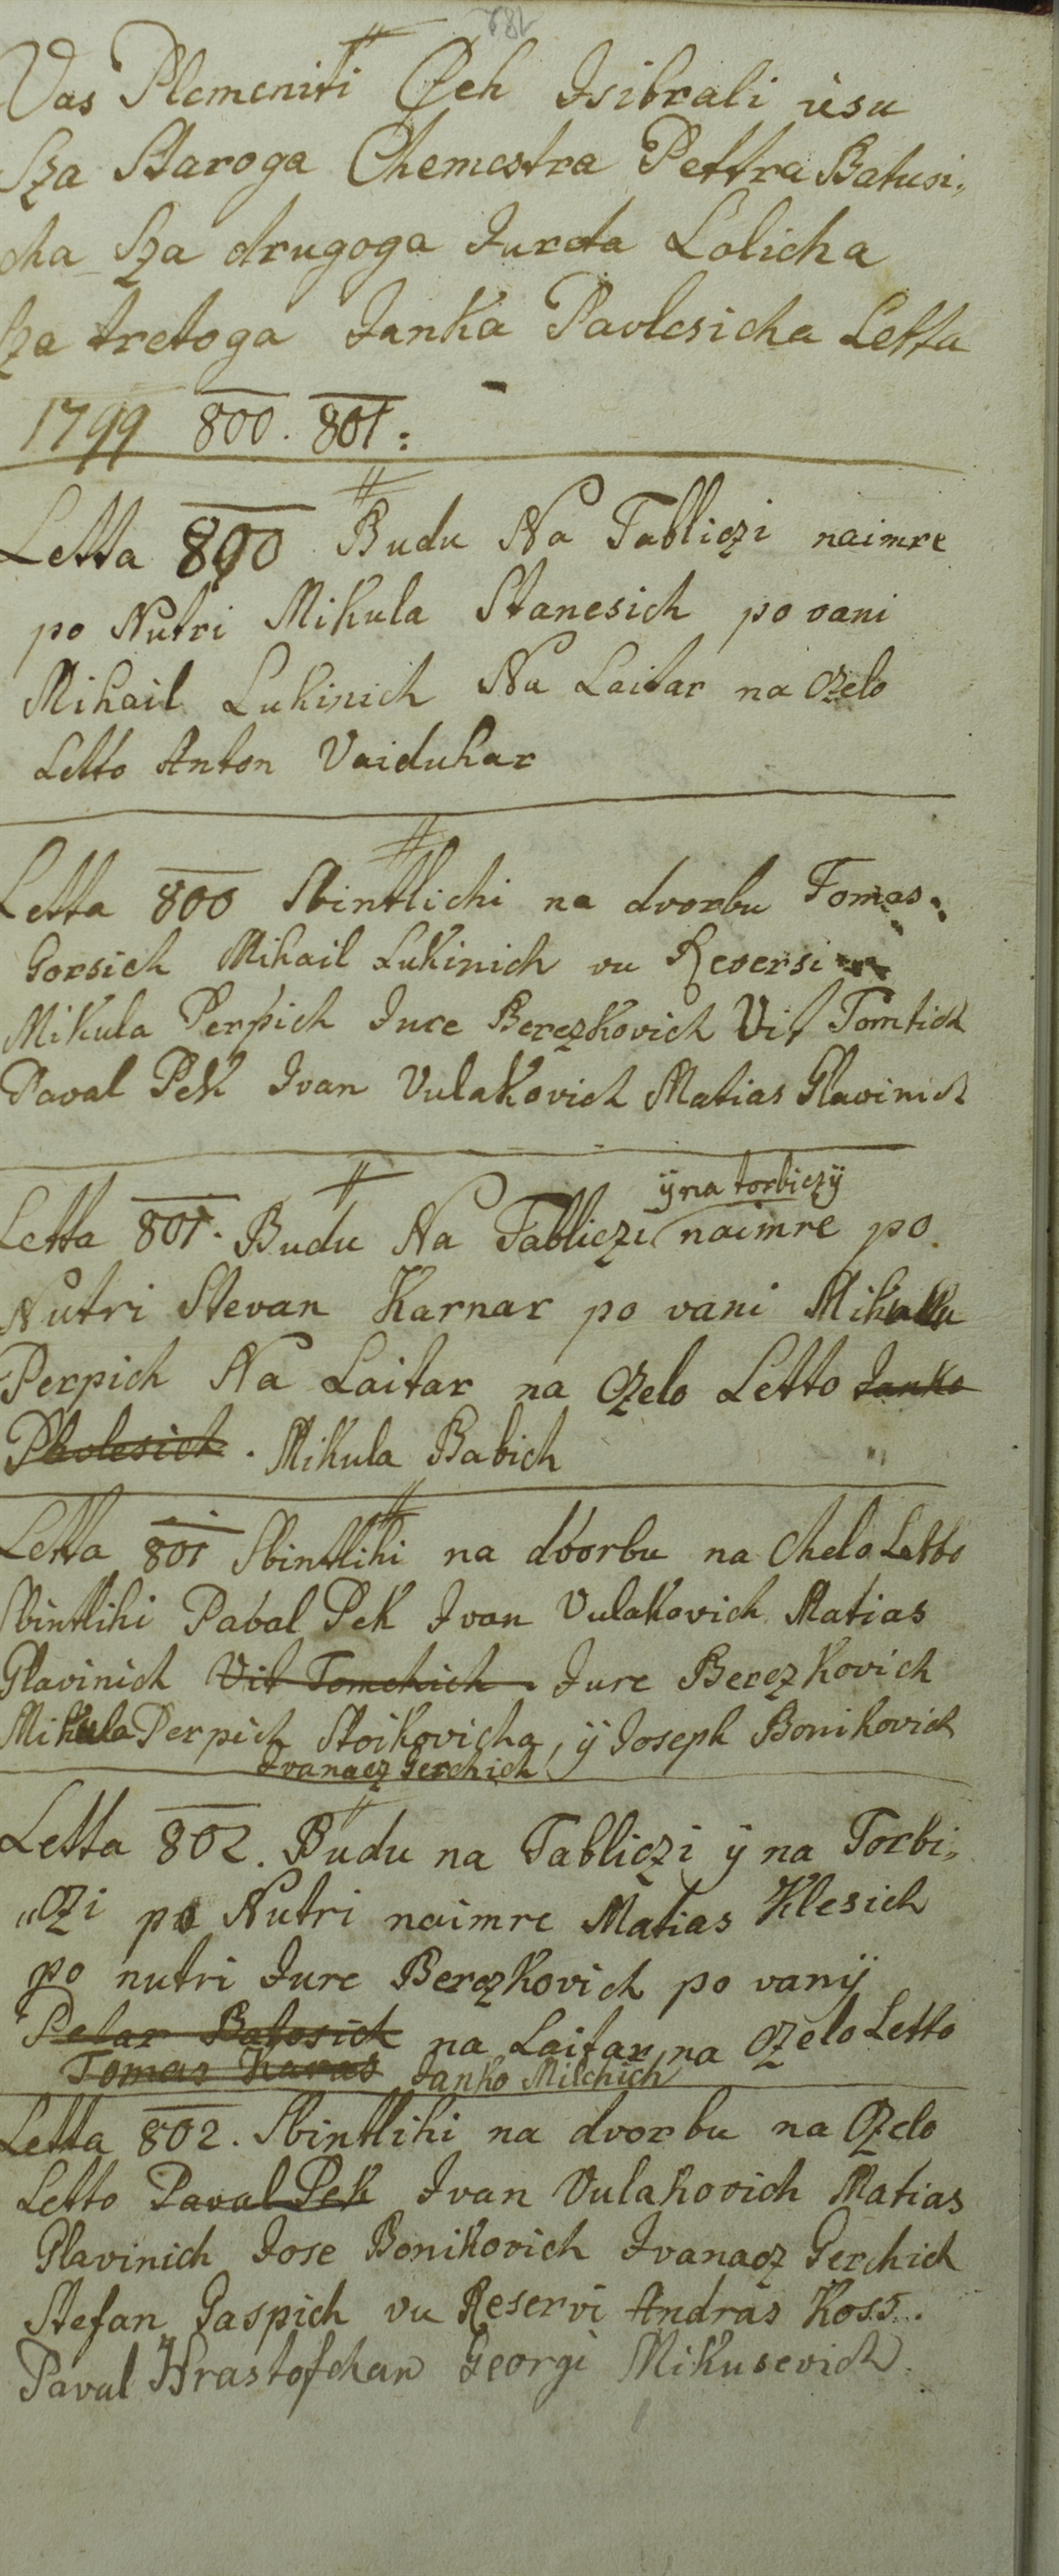 182
Vas Plemeniti Czeh Isibrali iesu
Sza Staroga Chemestra Pettra Batusi,,
cha Sza drugoga Jureta Lolicha
Sza tretoga Janka Pavlesicha Letta
1799 800. 801:
Letta 800 Budu Na Tabliczi naimre
po Nutri Mikula Stanesich po vani
Mihail Lukinich Na Laitar na Czelo
Letto Anton Vaiduhar
Letta 800 Sbintlichi na dvorbu Tomas
Gorsich Mihail Lukinich vu Reversi
Mikula Perpich Jure Berezkovich Vit Tomtich
Paval Pek Ivan Vulakovich Matias Glavinich
ÿ na torbiczÿ
Letta 801. Budu Na Tabliczi naimre po
Nutri Stevan Karnar po vani Mikula
Perpich Na Laitar na Czelo Letto Janko
Pavlesich. Mikula Babich
Letta 801 Sbintlihi na dvorbu na Chelo Letto
Sbintlihi Paval Pek Ivan Vulakovich Matias
Glavinich Vit Tomchich. Jure Berezkovich
Mikula Perpich Stoikovicha, ÿ Joseph Bonikovich
Ivanacz Gerchich
Letta 802. Budu na Tabliczi ÿ na Torbi,,
,,czi po Nutri naimre Matias Klesich
po nutri Jure Berezkovich po vanÿ
Petar Batosich na Laitar na Czelo Letto
Tomas Karas Janko Milchich
Letta 802. Sbintlihi na dvorbu na Czelo
Letto Paval Pek Ivan Vulakovich Matias
Glavinich Jose Bonikovich Ivanacz Gerchich
Stefan Gaspich vu Reservi Andras Koss.
Paval Hrastofchan Georgi Mikusevich.